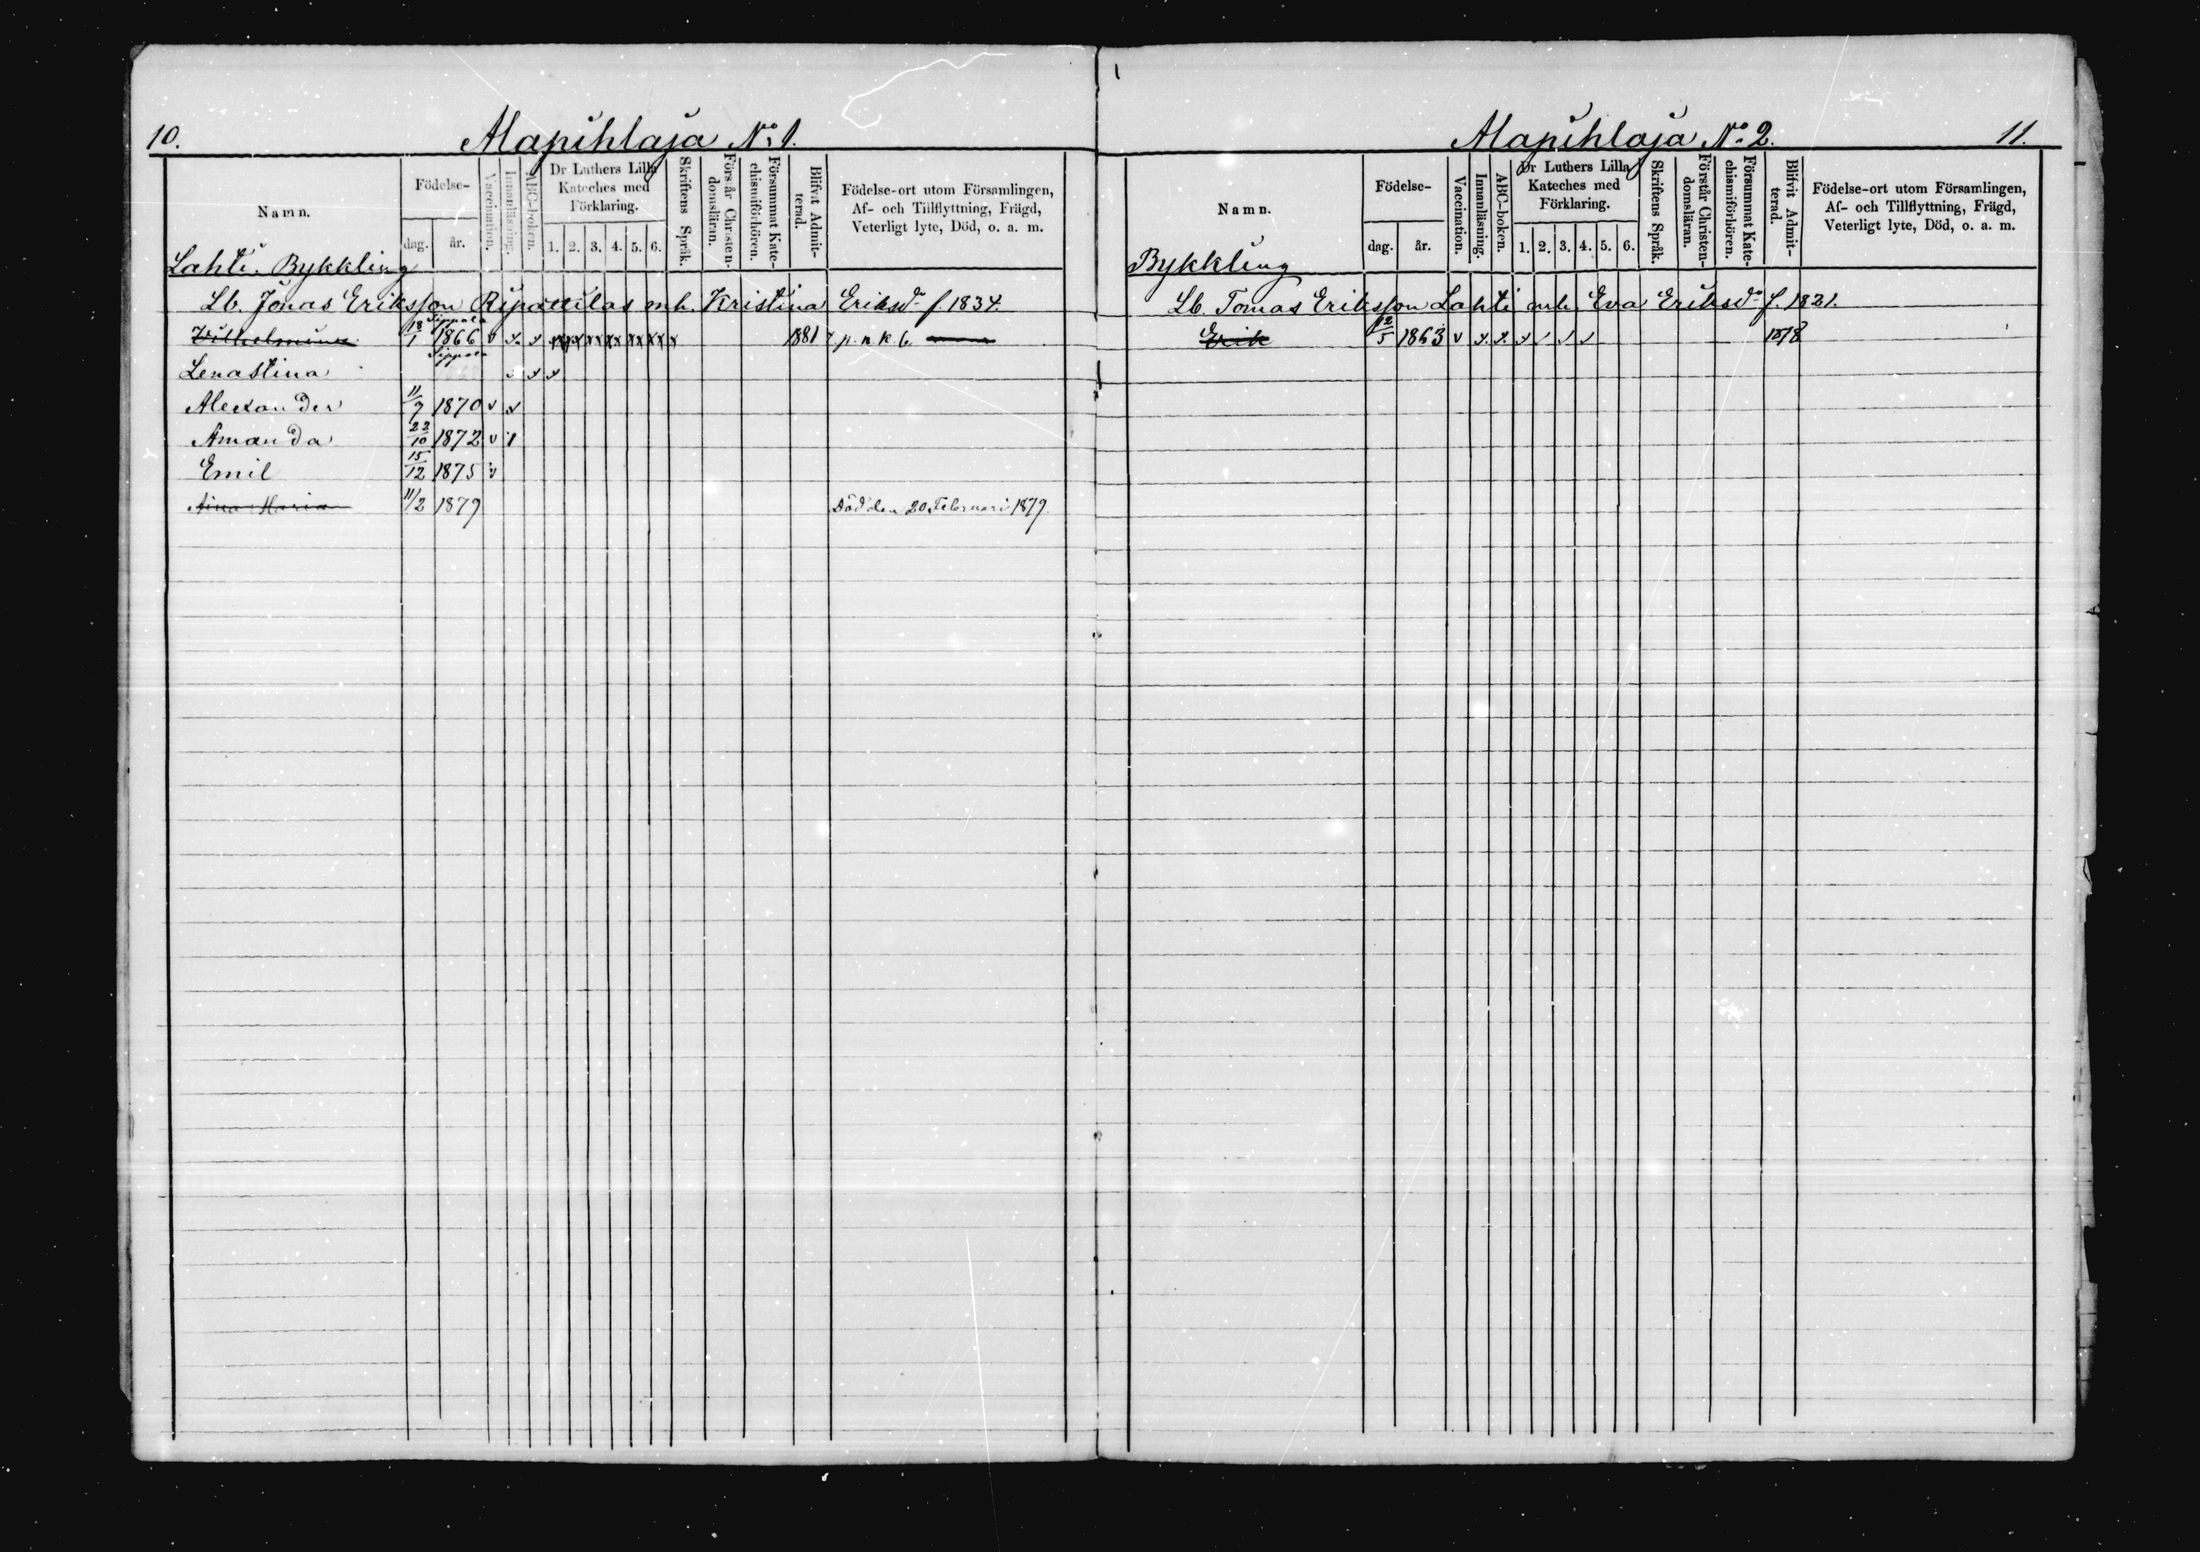 10.
Alapihlaja No. 1.
Namn.
Födelse-
dag. år.
Vaccination.
Innanläsning.
ABC-boken.
Dr Luthers Lilla Kateches med Förklaring.
1. 2. 3. 4. 5. 6.
Skriftens Språk.
Förstår Christendomsläran.
Försummat Katechismiförhören.
Blifvit Admitterad.
Födelse-ort utom Församlingen,
Af- och Tillflyttning, Frägd,
Veterligt lyte, Död, o. a. m.
Lahti. Bykkling
Lb. Jonas Eriksson mh. Kristina Eriksdr f. 1834.
Sippola
Vilhelmina 18/1 1866 v x x x x x x x x x 1881 p. n. k. b.
Sippola
Lenastina x x x
Alexander 11/7 1870 v x
Amanda 22/10 1872 v 1
Emil 15/12 1875 v
Aina Maria 11/2 1879 Död den 20 Februari 1879.
Alapihlaja No. 2.
11.
Namn.
Födelse-
dag. år.
Vaccination.
Innanläsning.
ABC-boken.
Dr Luthers Lilla Kateches med Förklaring.
1. 2. 3. 4. 5. 6.
Skriftens Språk.
Förstår Christendomsläran.
Försummat Katechismiförhören.
Blifvit Admitterad.
Födelse-ort utom Församlingen,
Af- och Tillflyttning, Frägd,
Veterligt lyte, Död, o. a. m.
Bykkling
Lb. Tomas Eriksson Lahti mh. Eva Eriksdr f. 1821.
Erik 12/5 1863 v x x x / / / 1878